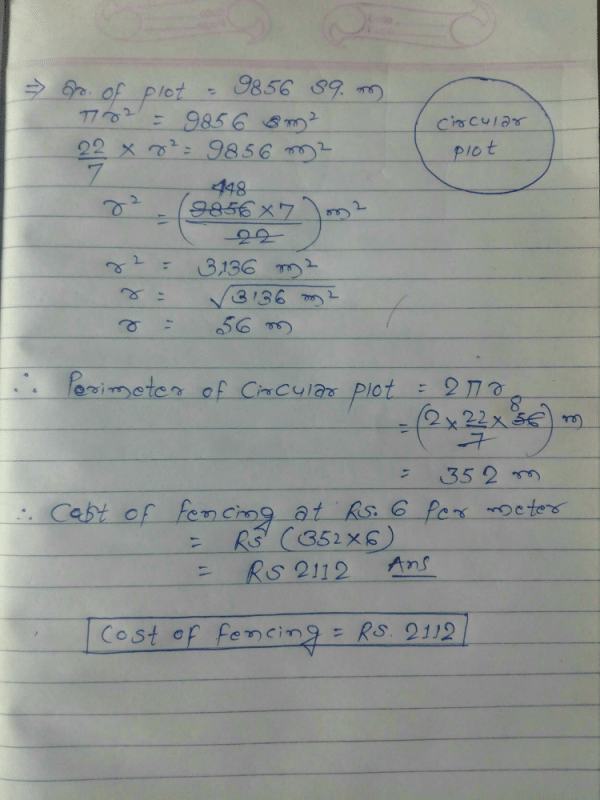 ⇒ Ar. of plot = 9856 sq. m
πr² = 9856 m²
circular
plot
22/7 × r² = 9856 m²
448
r² = (9856 × 7 / 22) m²
r² = 3136 m²
r = √3136 m²
r = 56 m
∴ Perimeter of circular plot = 2πr
8
= (2 × 22/7 × 56) m
= 352 m
∴ Cost of fencing at Rs. 6 Per meter
= Rs (352×6)
= RS 2112 Ans
Cost of fencing = Rs. 2112